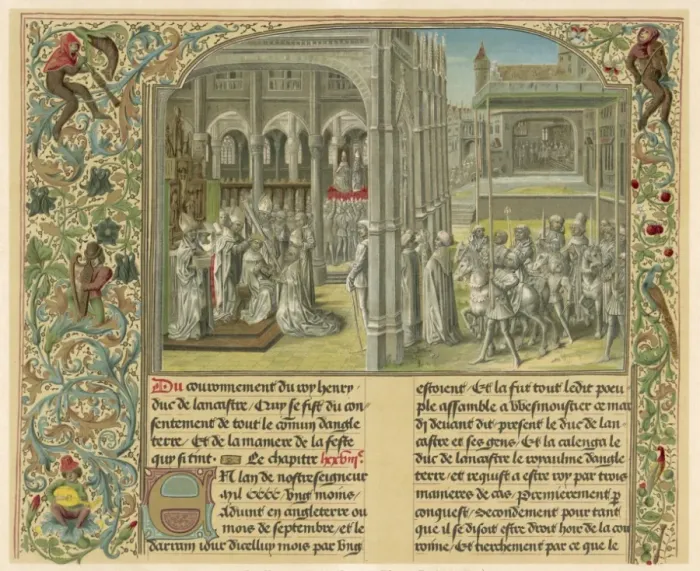 Du couronnement du roy henry
duc de lancastre / Qui se fist du con
sentement de tout le comun dangle
terre / Et de la maniere de la feste
qui si tint. Le chapitre
En lan de nostreseigneur
mil cccc vng moins /
Aduint en angleterre ou
mois de septembre / et le
darrain iour dicelluy mois par vng
estoient / Et la fut tout ledit peu
ple assamble a wesmoustier ce mar
di deuant dit present le duc de lan
castre et ses gens / Et la calenga le
duc de lancastre le royaulme dangle
terre / et requist a estre roy par trois
manieres de cas / Premierement p
conquest / Secondement pour tant
que il se disoit estre droit hoir de la cou
ronne / Et tierchement par ce que le